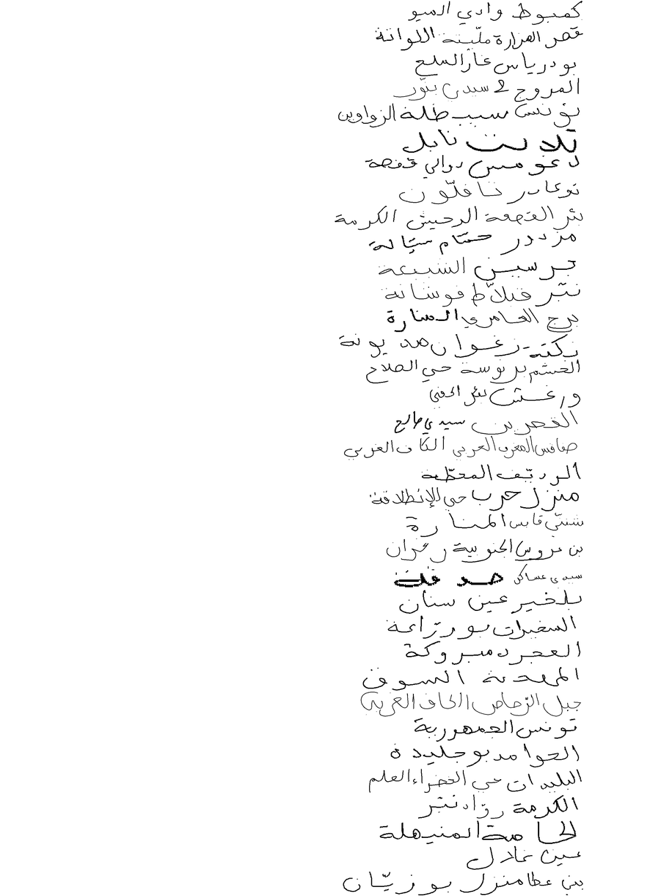 كمبوط وادي الميو
قصر الهرارة ملّيتة اللواتة
بودرياس غار الملح
المروج 2 سيدي بنّور
تونس سبيطلة الزواوين
ثلاث نابل
دغومس دوالي قفصة
توغاسر تافلّون
بئر القصعة الرحيش الكرمة
مزدور حشّام سيّالة
جرسين الشبيعة
نتر فوسانة
برج العامري المنارة
زغوان مديونة
بريوسة حي الصلاح
ورغش بئر الحفي
القصرين سيدي صالح
صفاقس المعهد العربي الكاف الغربي
الرديّف المحطّة
منزل حرب حي الإنطلاقة
شنّي قابس المنارة
بن عروس الجنوبية زغران
سيدي عساكر صدقة
بلخير عين سنان
السفيرات بورزّاعة
العجرد مبروكة
المهدية السوق
جبل الرّصاص الكاف الغربية
تونس الجمهورية
الحوامد بوجليدة
البليدات حي الخضراء العلم
الكرمة روّاد نتر
الحامة المنيهلة
عين غلال
بني عطا منزل بوزيّان